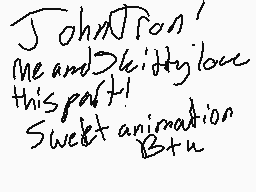 JohnTron!
me and Skitty love
this part!
Sweet animation
Btw